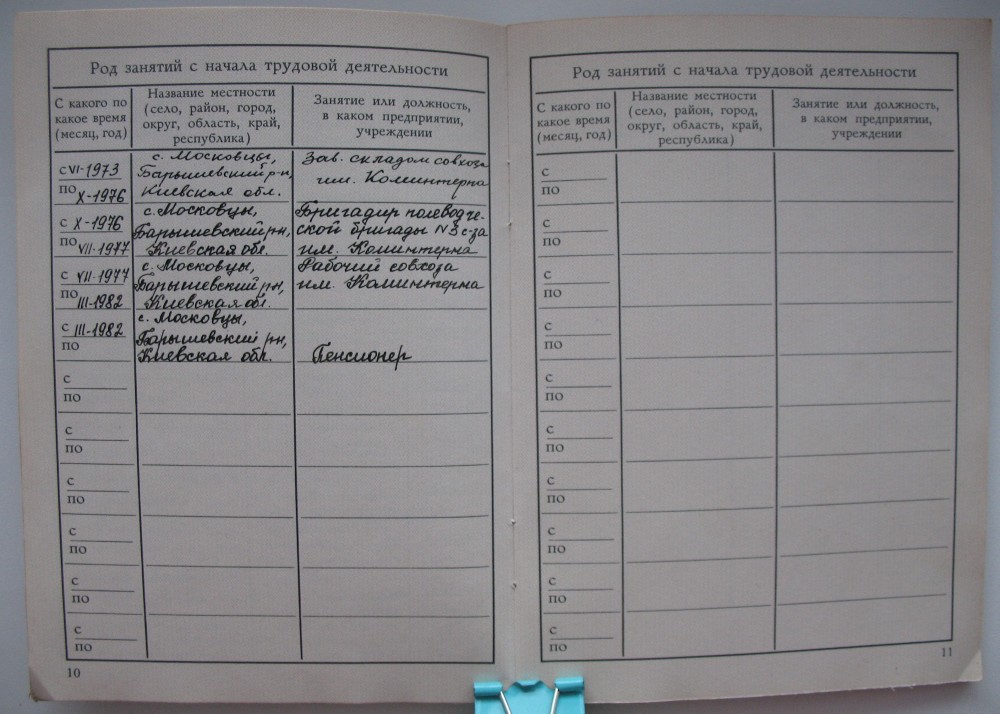 Род занятий с начала трудовой деятельности
С какого по какое время (месяц, год)
Название местности (село, район, город, округ, область, край, республика)
Занятие или должность, в каком предприятии, учреждении
с VI-1973
по X-1976
с. Московцы,
Барышевский р-н,
Киевская обл.
Зав. складом совхоза
им. Коминтерна
с X-1976
по VII-1977
с. Московцы,
Барышевский рн,
Киевская обл.
Бригадир полеводче-
ской бригады N3 с-за
им. Коминтерна
с VII-1977
по III-1982
с. Московцы,
Барышевский рн,
Киевская обл.
Рабочий совхоза
им. Коминтерна
с III-1982
по
с. Московцы,
Барышевский рн,
Киевская обл.
Пенсионер
с
по
с
по
с
по
с
по
с
по
с
по
10
Род занятий с начала трудовой деятельности
С какого по какое время (месяц, год)
Название местности (село, район, город, округ, область, край, республика)
Занятие или должность, в каком предприятии, учреждении
с
по
с
по
с
по
с
по
с
по
с
по
с
по
с
по
с
по
с
по
11